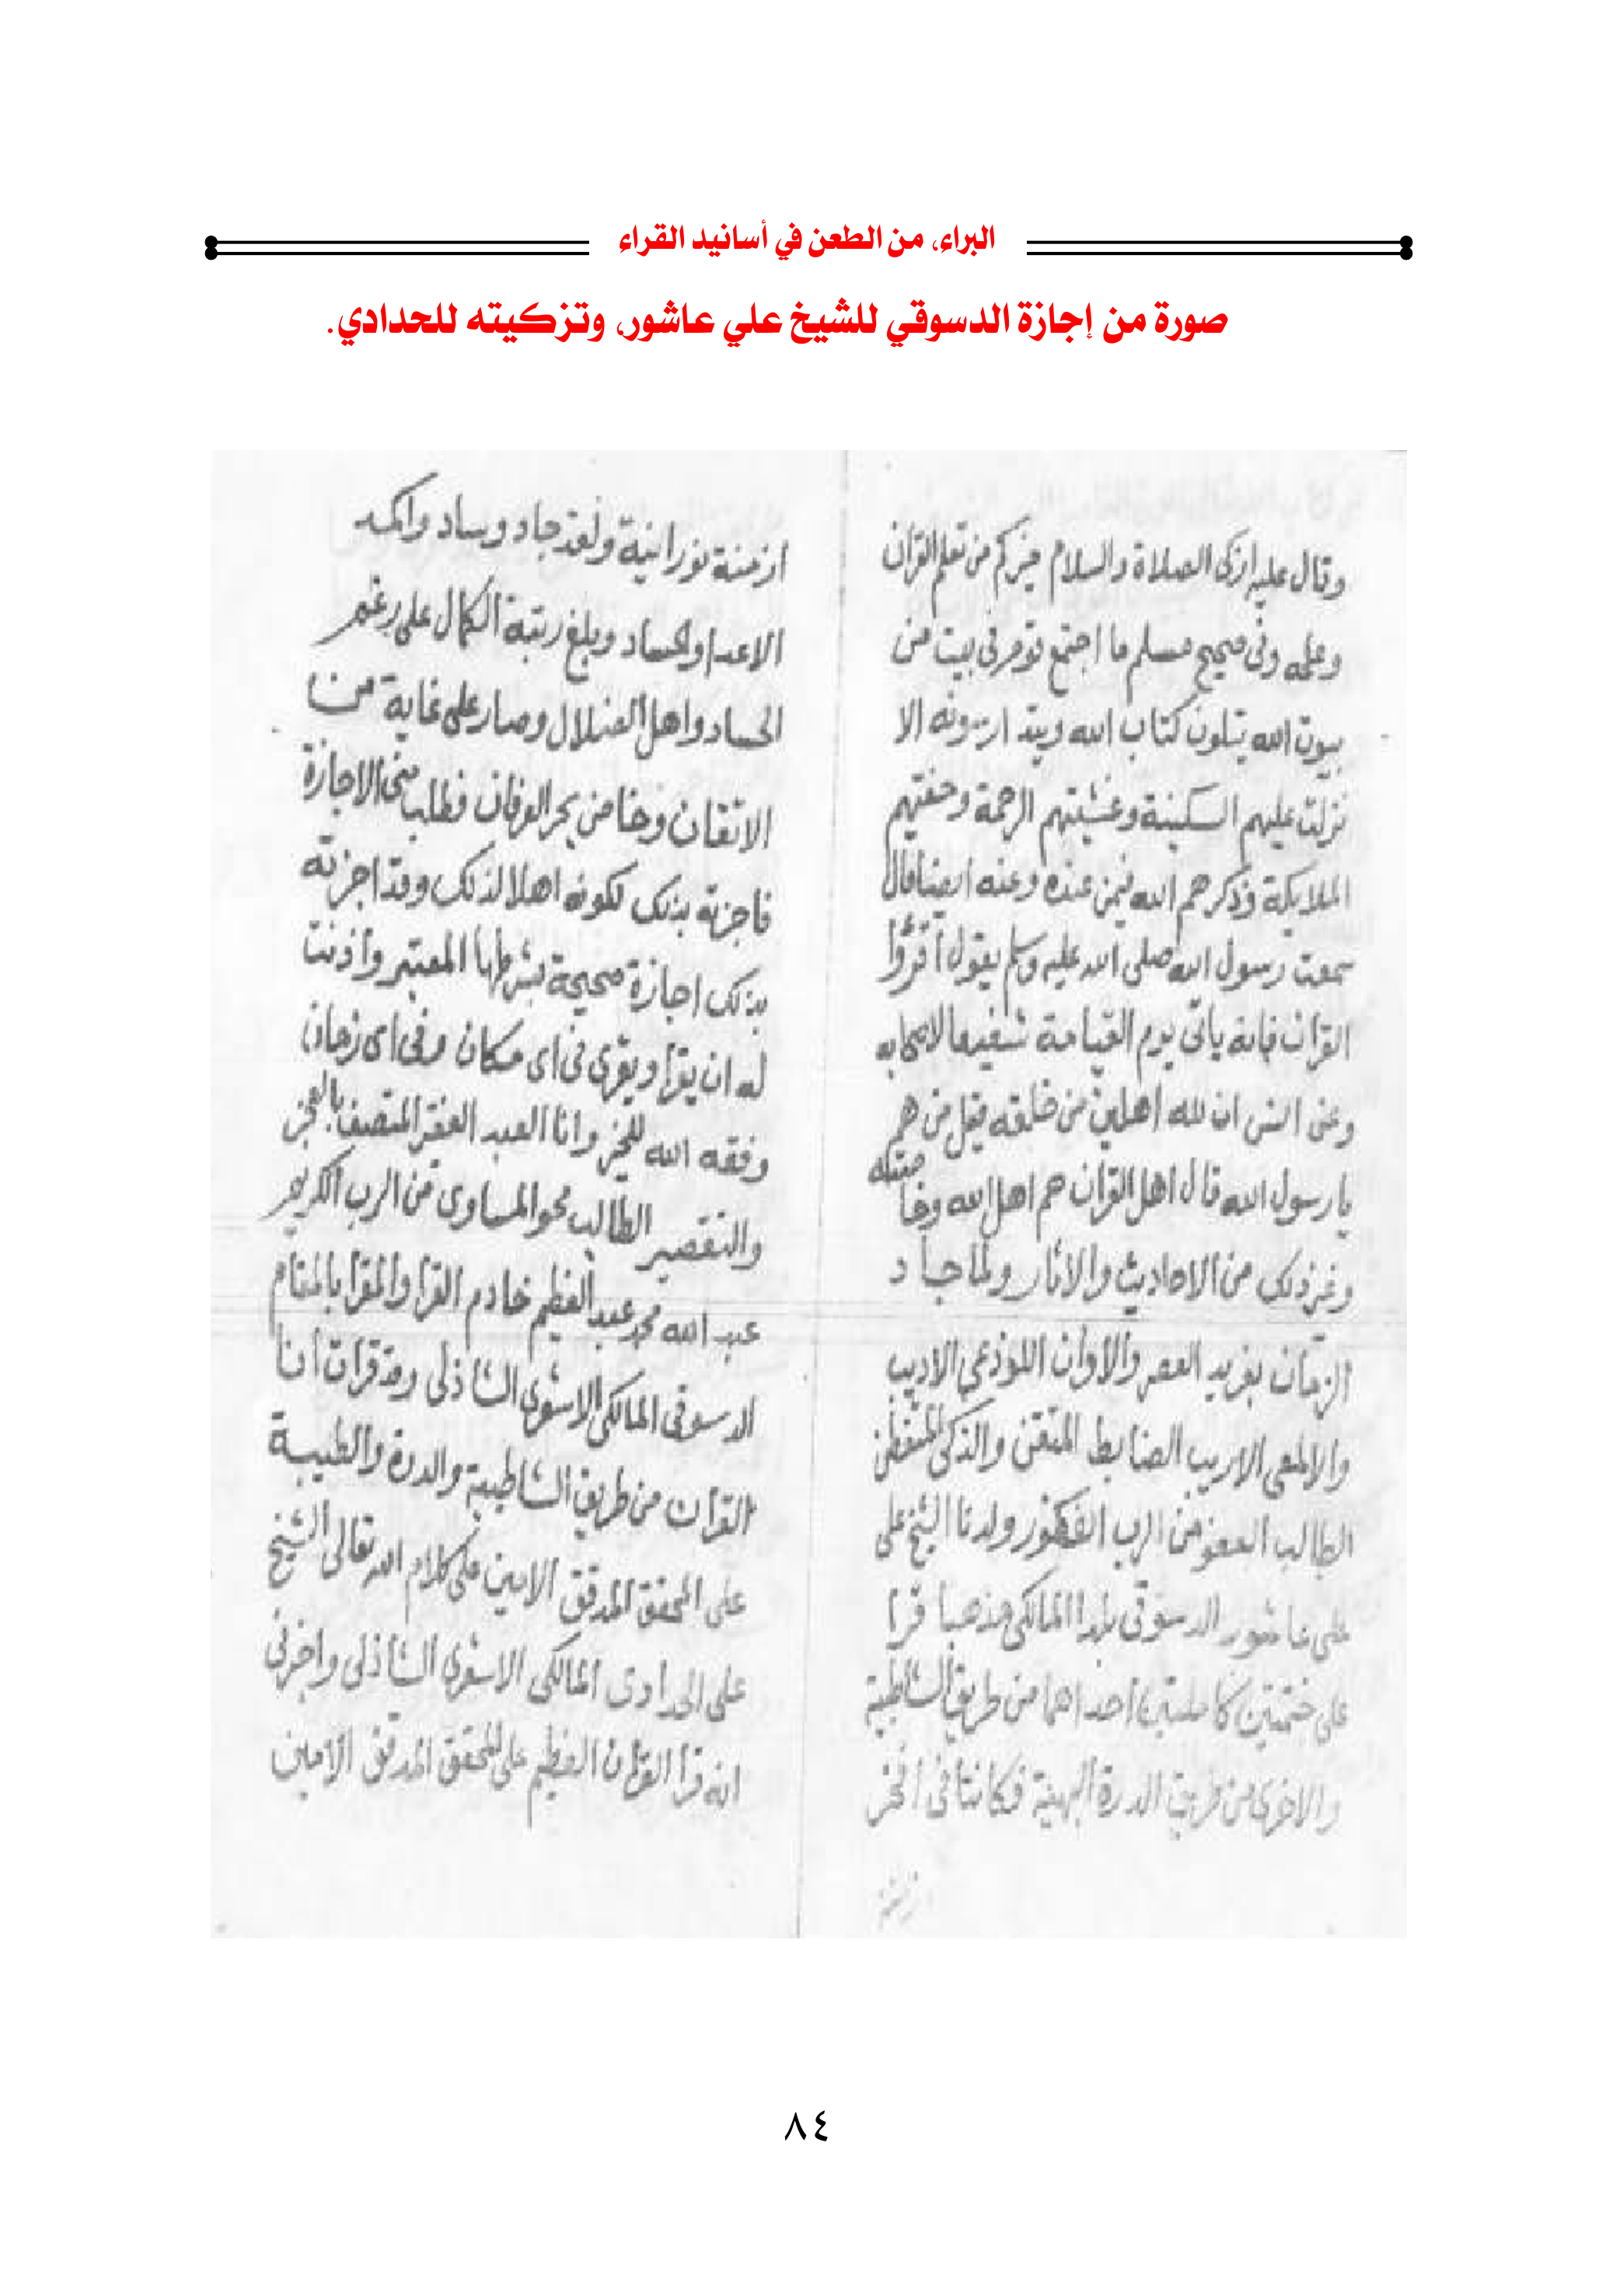 البراء، من الطعن في أسانيد القراء
صورة من إجازة الدسوقي للشيخ علي عاشور، وتزكيته للحدادي.
وقال عليه ازكى الصلاة والسلام خيركم من تعلم القران
وعلمه وفى صحيح مسلم ما اجتمع قوم فى بيت من
بيوت الله يتلون كتاب الله ويتدارسونه الا
نزلت عليهم السكينة وغشيتهم الرحمة وحفتهم
الملايكة وذكرهم الله فيمن عنده وعنه ايضا قال
سمعت رسول الله صلى الله عليه وسلم يقول اقرؤا
القران فانه ياتى يوم القيامة شفيعا لاصحابه
وعن انس ان لله اهلين من خلقه قيل من هم
يا رسول الله قال اهل القران هم اهل الله وخاصته
وغير ذلك من الاحاديث والاثار ولما جاد
الزمان بفريد العصر والاوان اللوذعى الاديب
والالمعى الاريب الضابط المتقن والذكى المتفطن
الطالب العفو من الرب الغفور ولدنا الشيخ على
على عاشور الدسوقى بلدا المالكى مذهبا قرا
على ختمتين كاملتين احداهما من طريق الشاطبية
والاخرى من طريق الدرة البهية فكانتا فى
ازمنة نورانية ولقد جاد وساد واكمد
الاعدا والحساد وبلغ رتبة الكمال على رغم
الحساد واهل الضلال وصار على غاية من
الاتقان وخاض بحر العرفان فطلب منى الاجازة
فاجزته بذلك لكونه اهلا لذلك وقد اجزته
بذلك اجازة صحيحة بشرطها المعتبر واذنت
له ان يقرا ويقرى فى اى مكان وفى اى زمان
وفقه الله للخير وانا العبد الفقير المتصف بالعجز
والتقصير الطالب محو المساوى من الرب الكريم
عبد الله محمد عبد العظيم خادم القرا والمقرا بالمقام
الدسوقى المالكى الاشعرى الشاذلى وقد قرات انا
القران من طريق الشاطبية والدرة والطيبة
على المحقق المدقق الامين على كلام الله تعالى الشيخ
على الحدادى المالكى الاشعرى الشاذلى واخبرنى
انه قرا القران العظيم على المحقق المدقق الامين
٨٤